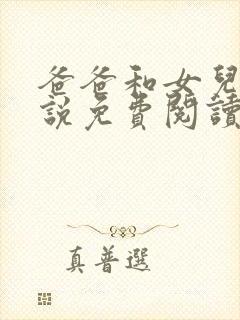 爸爸和女兒
說免費閱讀
真普選